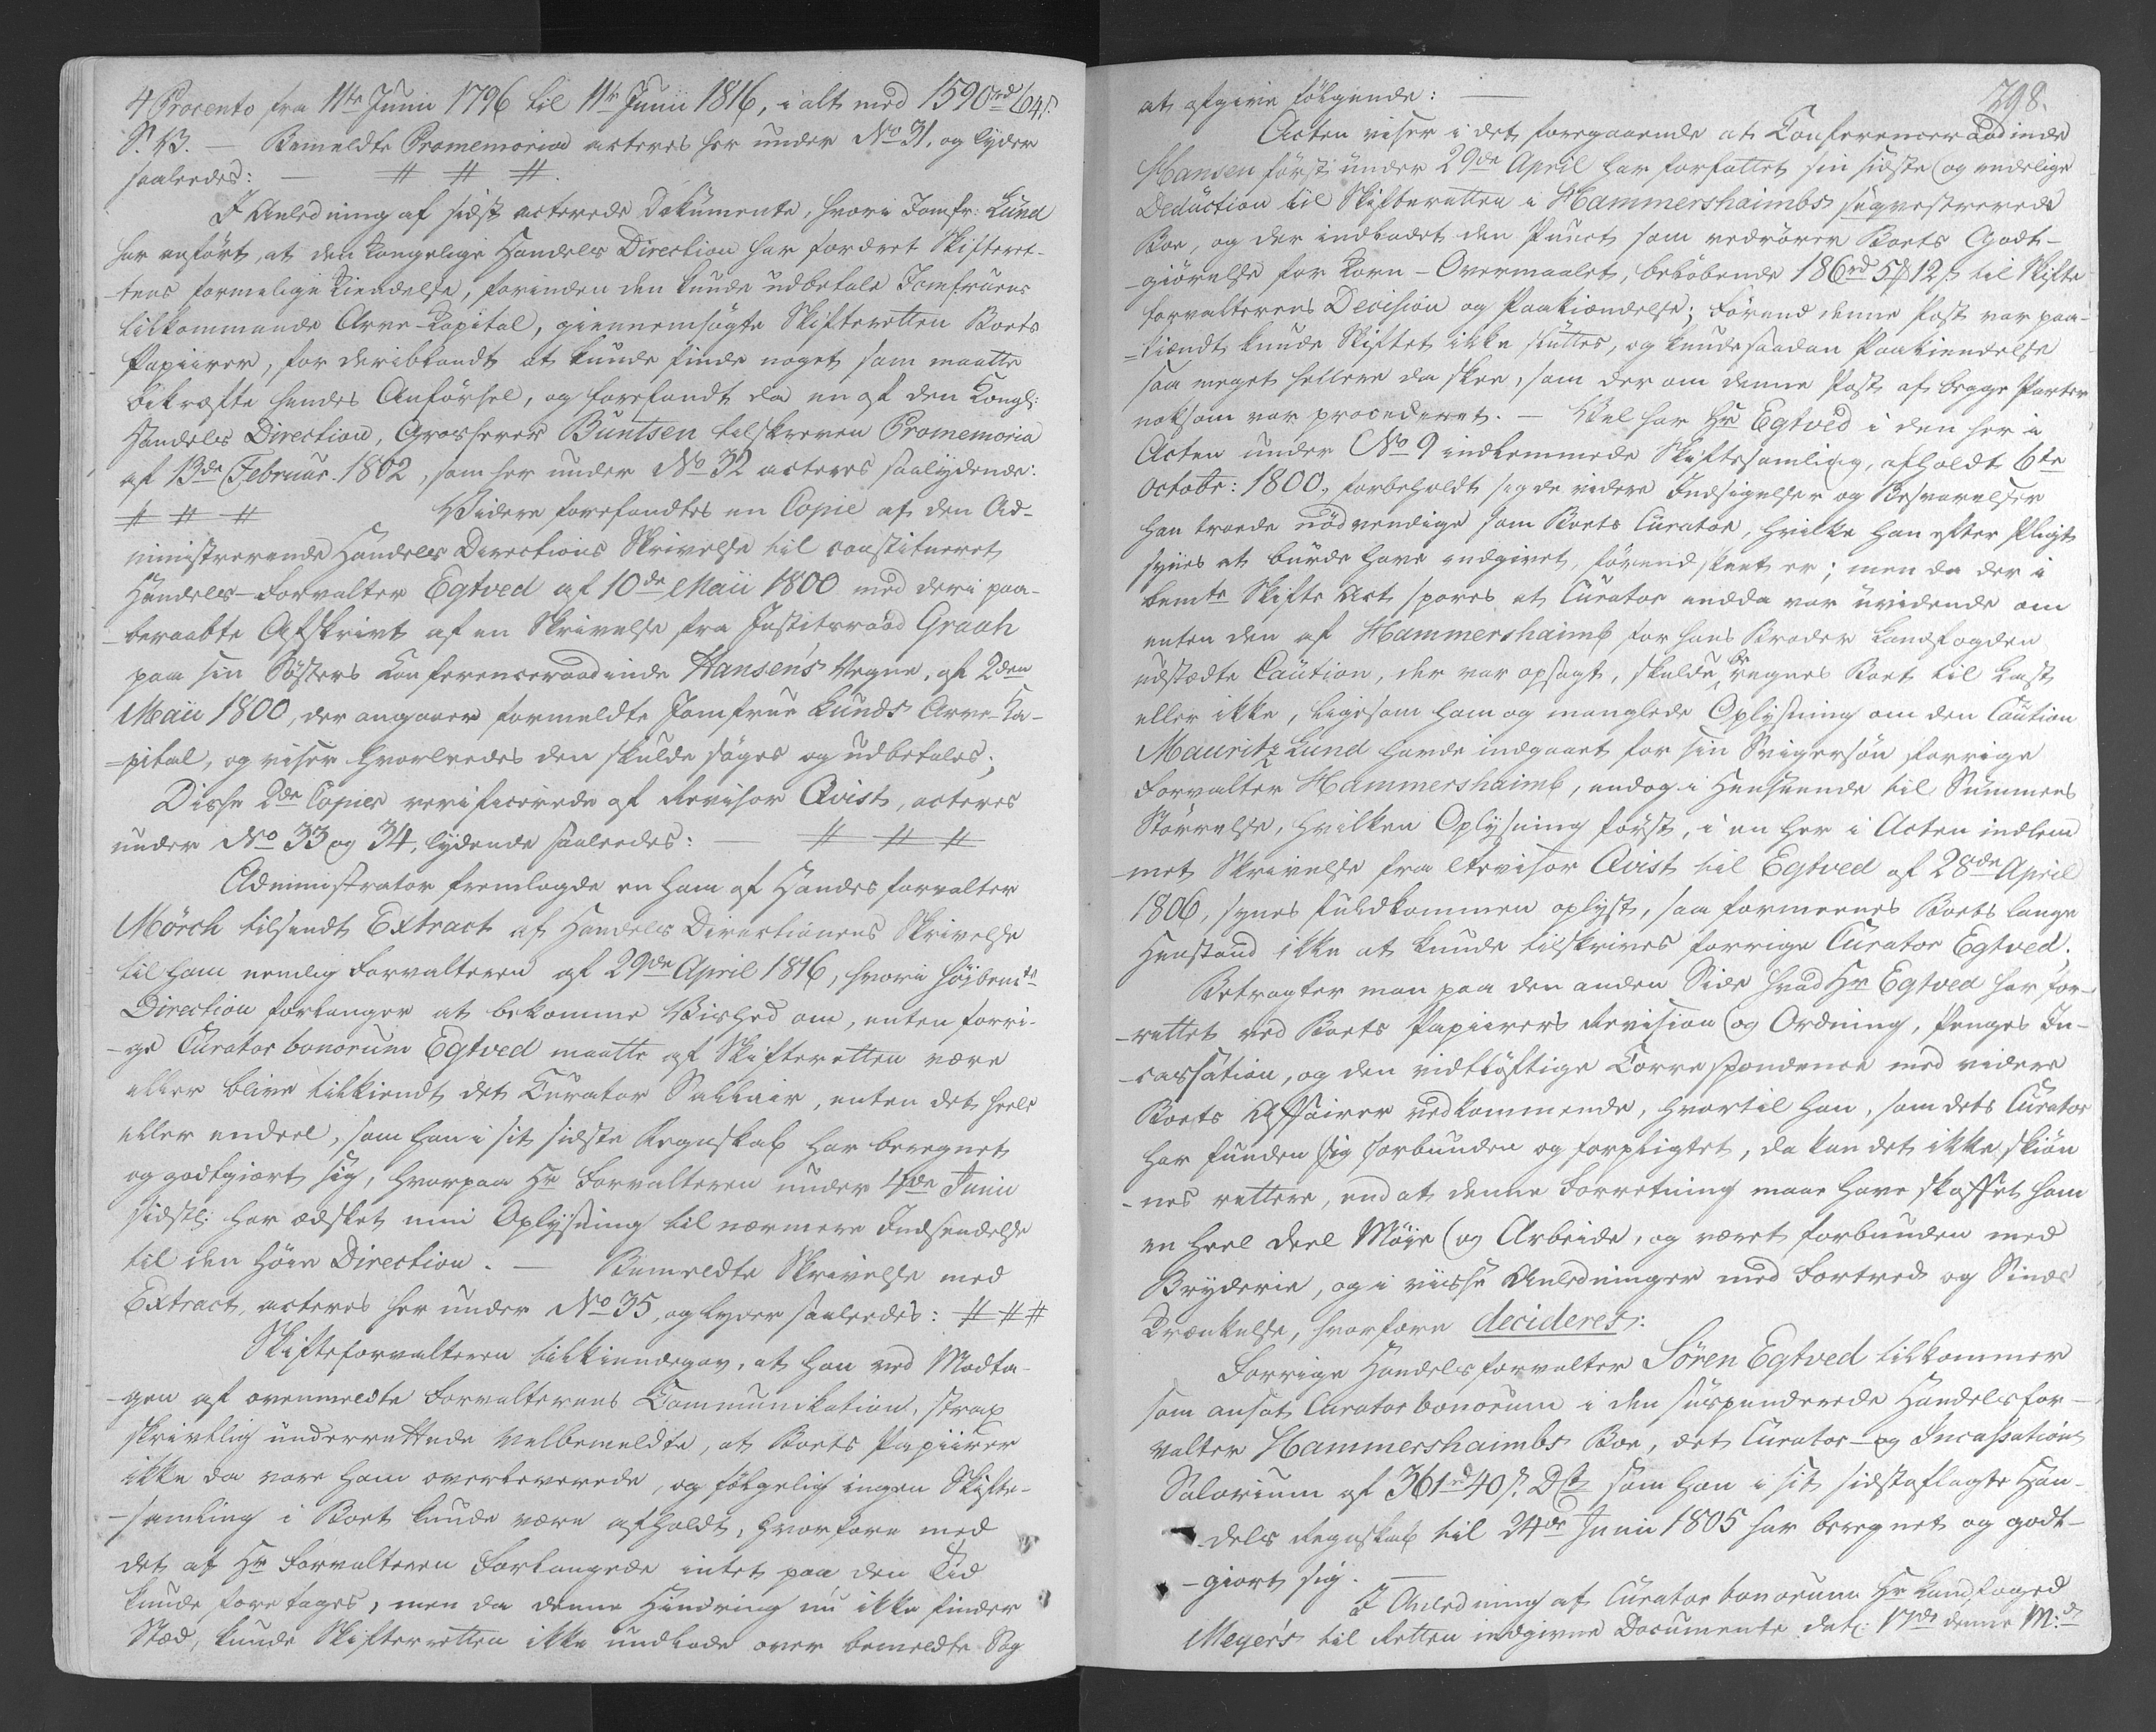 4 Procento fra 11te Junii 1796 til 11te Junii 1816, i alt med 1590rd 64s.
S.V. — Bemeldte Promemoria acteres her under No 31, og lyder
saaledes: — # # #.
I Anledning af sidst acterede Dokumente, hvori Jomfr: Lund
har anført, at den kongelige Handels Direction har fordret Skifteret-
-tens formelige Kiendelse, forinden den kunde udbetale Jomfruens
tilkommende Arve-Kapital, giennemsøgte Skifteretten Boets
Papiirer, for deriblandt at kunde finde noget som maatte
bekræfte hendes Anførsel, og forefandt da en af den Kongl:
Handels Direction, Grosserer Buntsen tilskreven Promemoria
af 13de Februar. 1802, som her under No 32 acteres saalydende:
# # # Widere forefandtes en Copie af den Ad-
ministrerende Handels Directions Skrivelse til constitueret
Handels-Forvalter Egtved af 10de Maii 1800 med deri paa-
-beraabte Afskrivt af en Skrivelse fra Justitsraad Graah
paa sin Søsters Conferenceraadinde Hansen's Vegne, af 2den
Maii 1800, der angaaer formeldte Jomfrue Lunds Arve-Ka-
-pital, og viser hvorledes den skulde søges og udbetales;
Disse 2de Copier verificerede af Revisor Qvist, acteres
under No 33 og 34, lydende saaledes: — # # #
Administrator fremlagde en ham af Handelsforvalter
Mörch tilsendt Extract af Handels Directionens Skrivelse
til ham nemlig Forvalteren af 29de April 1816, hvori høibemte
Direction forlanger at bekomme Vished om, enten forri-
-ge Curator bonorum Egtved maatte af Skifteretten være
eller blive tilkiendt det Curator Sallair, enten det heele
eller endeel, som han i sit sidste Regnskab har beregnet
og godtgiort sig, hvorpaa Hr Forvalteren under 4de Junii
sidstl: har æsket min Oplysning til nærmere Indsendelse
til den høie Direction. — Bemeldte Skrivelse med
Extract, acteres her under No 35, og lyder saaledes: # # #
Skifteforvalteren tilkiendegav, at han ved Modta-
-gen af ovenmeldte Forvalterens Communikation, strax
skrivtlig underrettede Velbemeldte, at Boets Papiirer
ikke da vare ham overleverede, og følgelig ingen Skifte-
-samling i Boet kunde være afholdt, hvorfore med
det af Hr Forvalteren Forlangede intet paa den Tid
kunde foretages, men da denne Hindring nu ikke finder
Sted, kunde Skifteretten ikke undlade over bemeldte Sag
298.
at afgive følgende: —
Acten viser i det foregaaende at Conferenceraadinde
Hansen først under 29de April har forfattet sin sidste og endelige
Deduction til Skifteretten i Hammershaimbs seqvestrerede
Boe, og der indladet den Punct som vedrører Boets Godt-
-giørelse for Korn-Overmaalet, beløbende 186rd 5# 12s til Skifte-
forvalterens Decision og Paakiendelse; førend denne Post var paa-
=kiendt kunde Skiftet ikke sluttes, og kunde saadan Paakiendelse
saa meget hellere da skee, som der om denne Post af begge Parter
noksom var procederet. — Vel har Hr Egtved i den her i
Acten under No 9 indlemmede Skiftesamling, afholdt 6te
Octobr: 1800, forbeholdt sig de videre Indsigelser og Besvarelser
han troede nødvendige som Boets Curator, hvilke han efter Pligt
synes at burde have indgivet, førend skeet er; men da der i
bemte Skifte Act spores at Curator endda var uvidende om
enten den af Hammershaimb for hans Broder Landfogden
udstædte Caution, der var opsagt, skulde beregnes Boet til Last
eller ikke, ligesom ham og manglede Oplysning om den Caution
Mauritz Lund havde indgaaet for sin Svigersøn forrige
Forvalter Hammershaimb, endog i Henseende til Summens
Størrelse, hvilken Oplysning først, i en her i Acten indlem-
-met Skrivelse fra Revisor Qvist til Egtved af 28de April
1806, synes fuldkommen oplyst, saa formeenes Boets lange
Henstand ikke at kunde tilskrives forrige Curator Egtved;
Betragter man paa den anden Side hvad Hr Egtved har for-
-rettet ved Boets Papiirers Revision og Ordning, Penges In-
-cassation, og den vidtløftige Correspondence med videre
Boets Affairer vedkommende, hvortil han, som dets Curator
har funden sig forbunden og forpligtet, da kan det ikke skiøn-
-nes rettere, end at denne Forretning maae have skaffet ham
en heel Deel Møie og Arbeide, og været forbunden med
Bryderie, og i visse Anledninger med Fortred og Sinds
Krænkelse, hvorfore decideres:
Forrige Handelsforvalter Søren Egtved tilkommer
som ansat Curator bonorum i den suspenderede Handelsfor-
valter Hammershaimbs Boe, det Curator- og Incassations
Salarium af 361rd 40s. D.C. som han i sit sidstaflagte Han-
-dels Regnskab til 24de Junii 1805 har beregnet og godt-
-giort sig. —
I Anledning af Curator bonorum Hr Landfoged
Meyer's til Retten indgivne Documente dat: 17de denne M:d